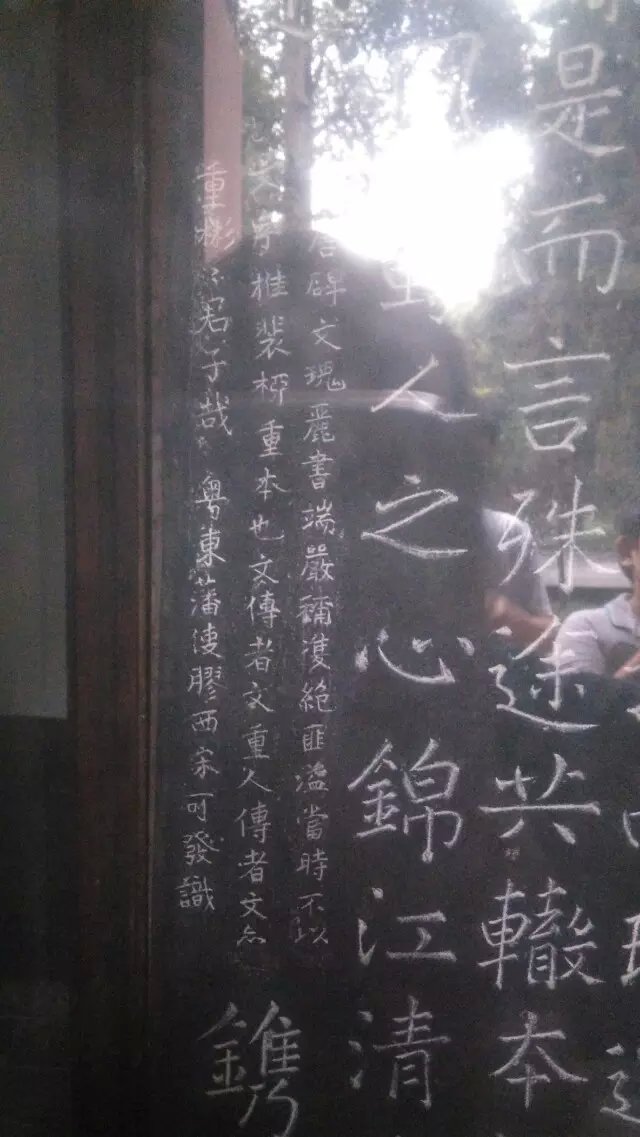 是而言殊途共轍本
動人之心錦江清
唐碑文瑰麗書端嚴穪雙絕匪溢當時不以
字推裴柳重本也文傳者文重人傳者文亦
重彬彬君子哉 粤東藩使膠西宋可發識
鐫